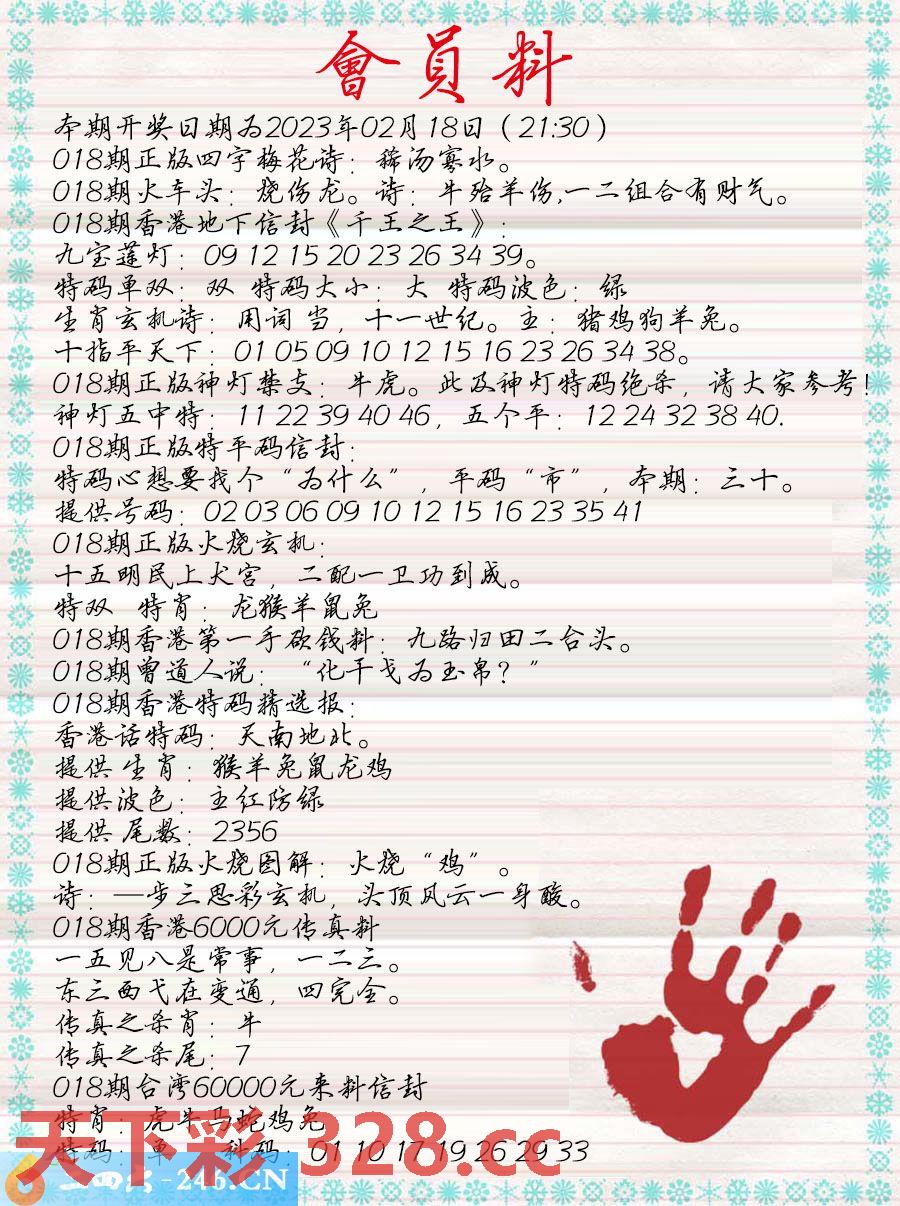 會員料
本期开奖日期为2023年02月18日（21:30）
018期正版四字梅花诗：稀汤寡水。
018期火车头：烧伤龙。诗：牛殆羊伤,一二组合有财气。
018期香港地下信封《千王之王》：
九宝莲灯：09 12 15 20 23 26 34 39。
特码单双：双 特码大小：大 特码波色：绿
生肖玄机诗：用词 当，十一世纪。主：猪鸡狗羊兔。
十指平天下：01 05 09 10 12 15 16 23 26 34 38。
018期正版神灯禁支：牛虎。此及神灯特码绝杀，请大家参考!
神灯五中特：11 22 39 40 46，五个平：12 24 32 38 40.
018期正版特平码信封：
特码心想要找个“为什么”，平码“市”，本期：三十。
提供号码：02 03 06 09 10 12 15 16 23 35 41
018期正版火烧玄机：
十五明民上犬宫，二配一卫功到成。
特双 特肖：龙猴羊鼠兔
018期香港第一手砍钱料：九路归田二合头。
018期曾道人说：“化干戈为玉帛？”
018期香港特码精选报：
香港话特码：天南地北。
提供 生肖：猴羊兔鼠龙鸡
提供波色：主红防绿
提供 尾数：2356
018期正版火烧图解：火烧“鸡”。
诗：一步三思彩玄机，头顶风云一身酸。
018期香港6000元传真料
一五见八是常事，一二三。
东三西弋在变通，四完全。
传真之杀肖：牛
传真之杀尾：7
018期台湾60000元来料信封
特肖：虎牛马蛇鸡兔
特码：单 种码：01 10 17 19 26 29 33
天下彩 328.cc
二四六-246.CN